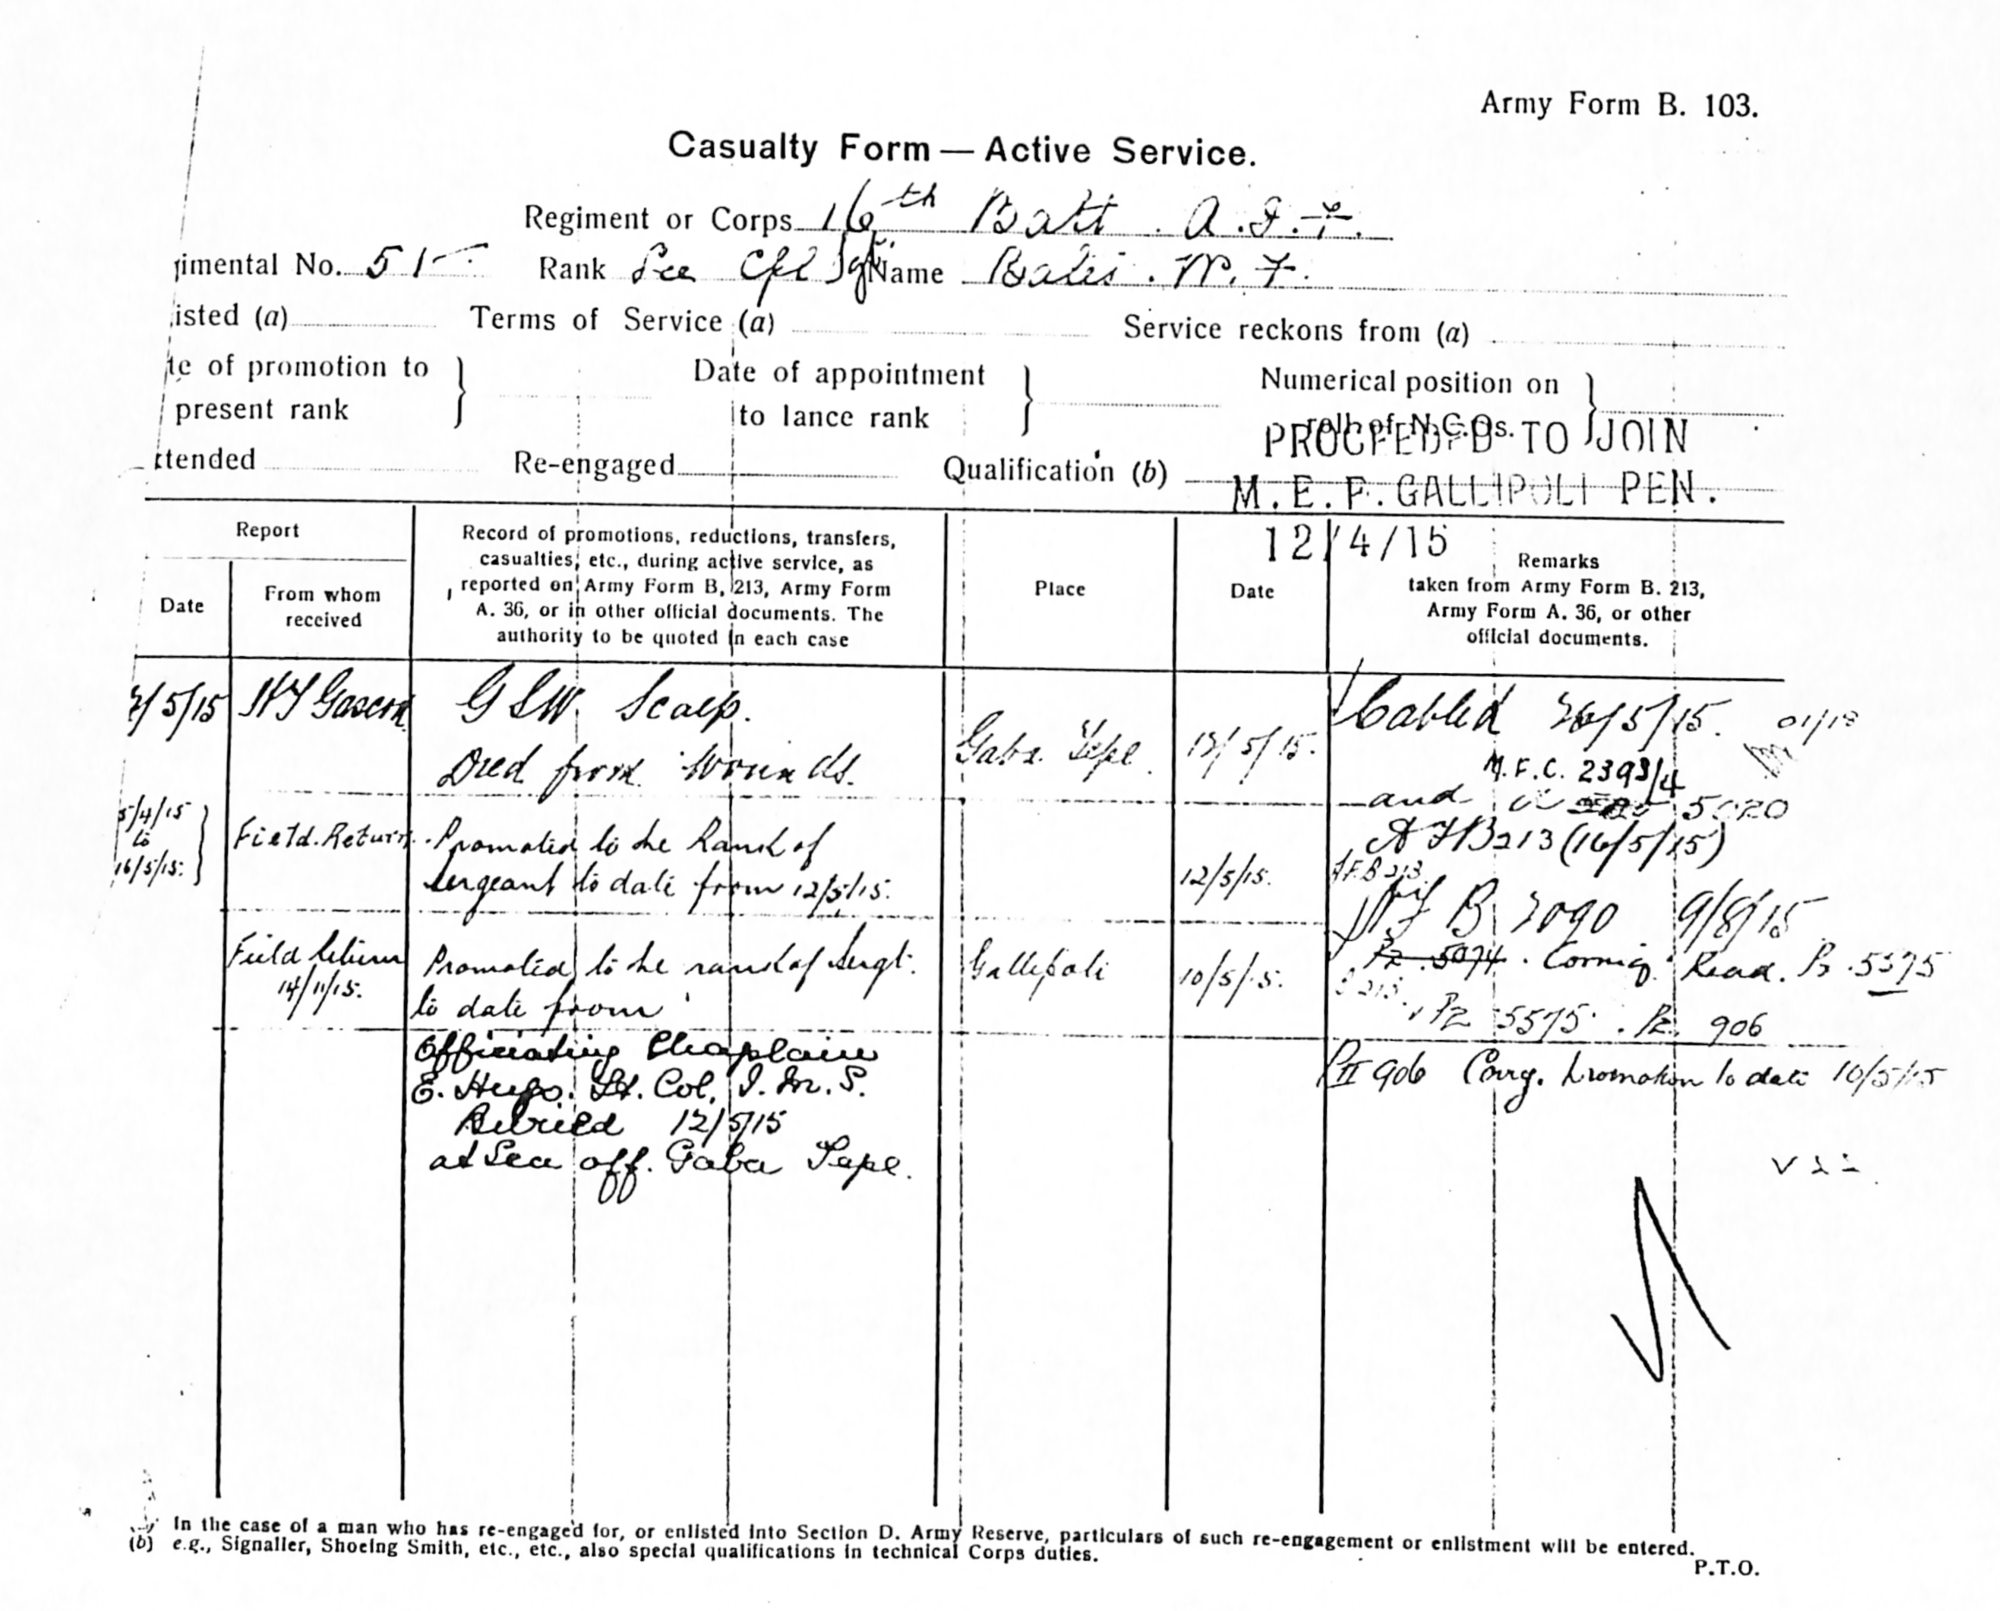 Army Form B. 103.
Casualty Form — Active Service.
Regiment or Corps 16th Batt. A.I.F.
gimental No. 515 Rank Pte Cpl Sgt. Name Bates. W. F.
isted (a) Terms of Service (a) Service reckons from (a)
te of promotion to present rank } Date of appointment to lance rank } Numerical position on roll of N.C.Os. }
PROCEEDED TO JOIN
xtended Re-engaged Qualification (b)
M.E.F. GALLIPOLI PEN.
12/4/15
Report
Date
From whom
received
Record of promotions, reductions, transfers,
casualties, etc., during active service, as
reported on Army Form B. 213, Army Form
A. 36, or in other official documents. The
authority to be quoted in each case
Place
Date
Remarks
taken from Army Form B. 213,
Army Form A. 36, or other
official documents.
/5/15 Gascon G S W. Scalp.
Died from Wounds.
Gaba Tepe. /5/15.
Cabled 26/5/15.
M.F.C. 2393/4
and 5020
5/4/15
to
16/5/15. }
Field. Return. Promoted to the Rank of
Sergeant to date from 12/5/15.
12/5/15.
A F B213 (16/5/15)
A.F.B 213.
B 2090 9/8/15
Field Return
14/11/15.
Promoted to the rank of Sergt.
to date from
Gallipoli 10/5/15.
P2 5074. Corrig. Read. P2. 5575
B 213. P2 5575. P2. 906
PII 906 Corrg. promotion to date 10/5/15
Officiating Chaplain
E. Hugo. Lt. Col. I. M. S.
Buried 12/5/15
at Sea off. Gaba Tape.
In the case of a man who has re-engaged for, or enlisted into Section D. Army Reserve, particulars of such re-engagement or enlistment will be entered.
(b) e.g., Signaller, Shoeing Smith, etc., etc., also special qualifications in technical Corps duties.
P.T.O.